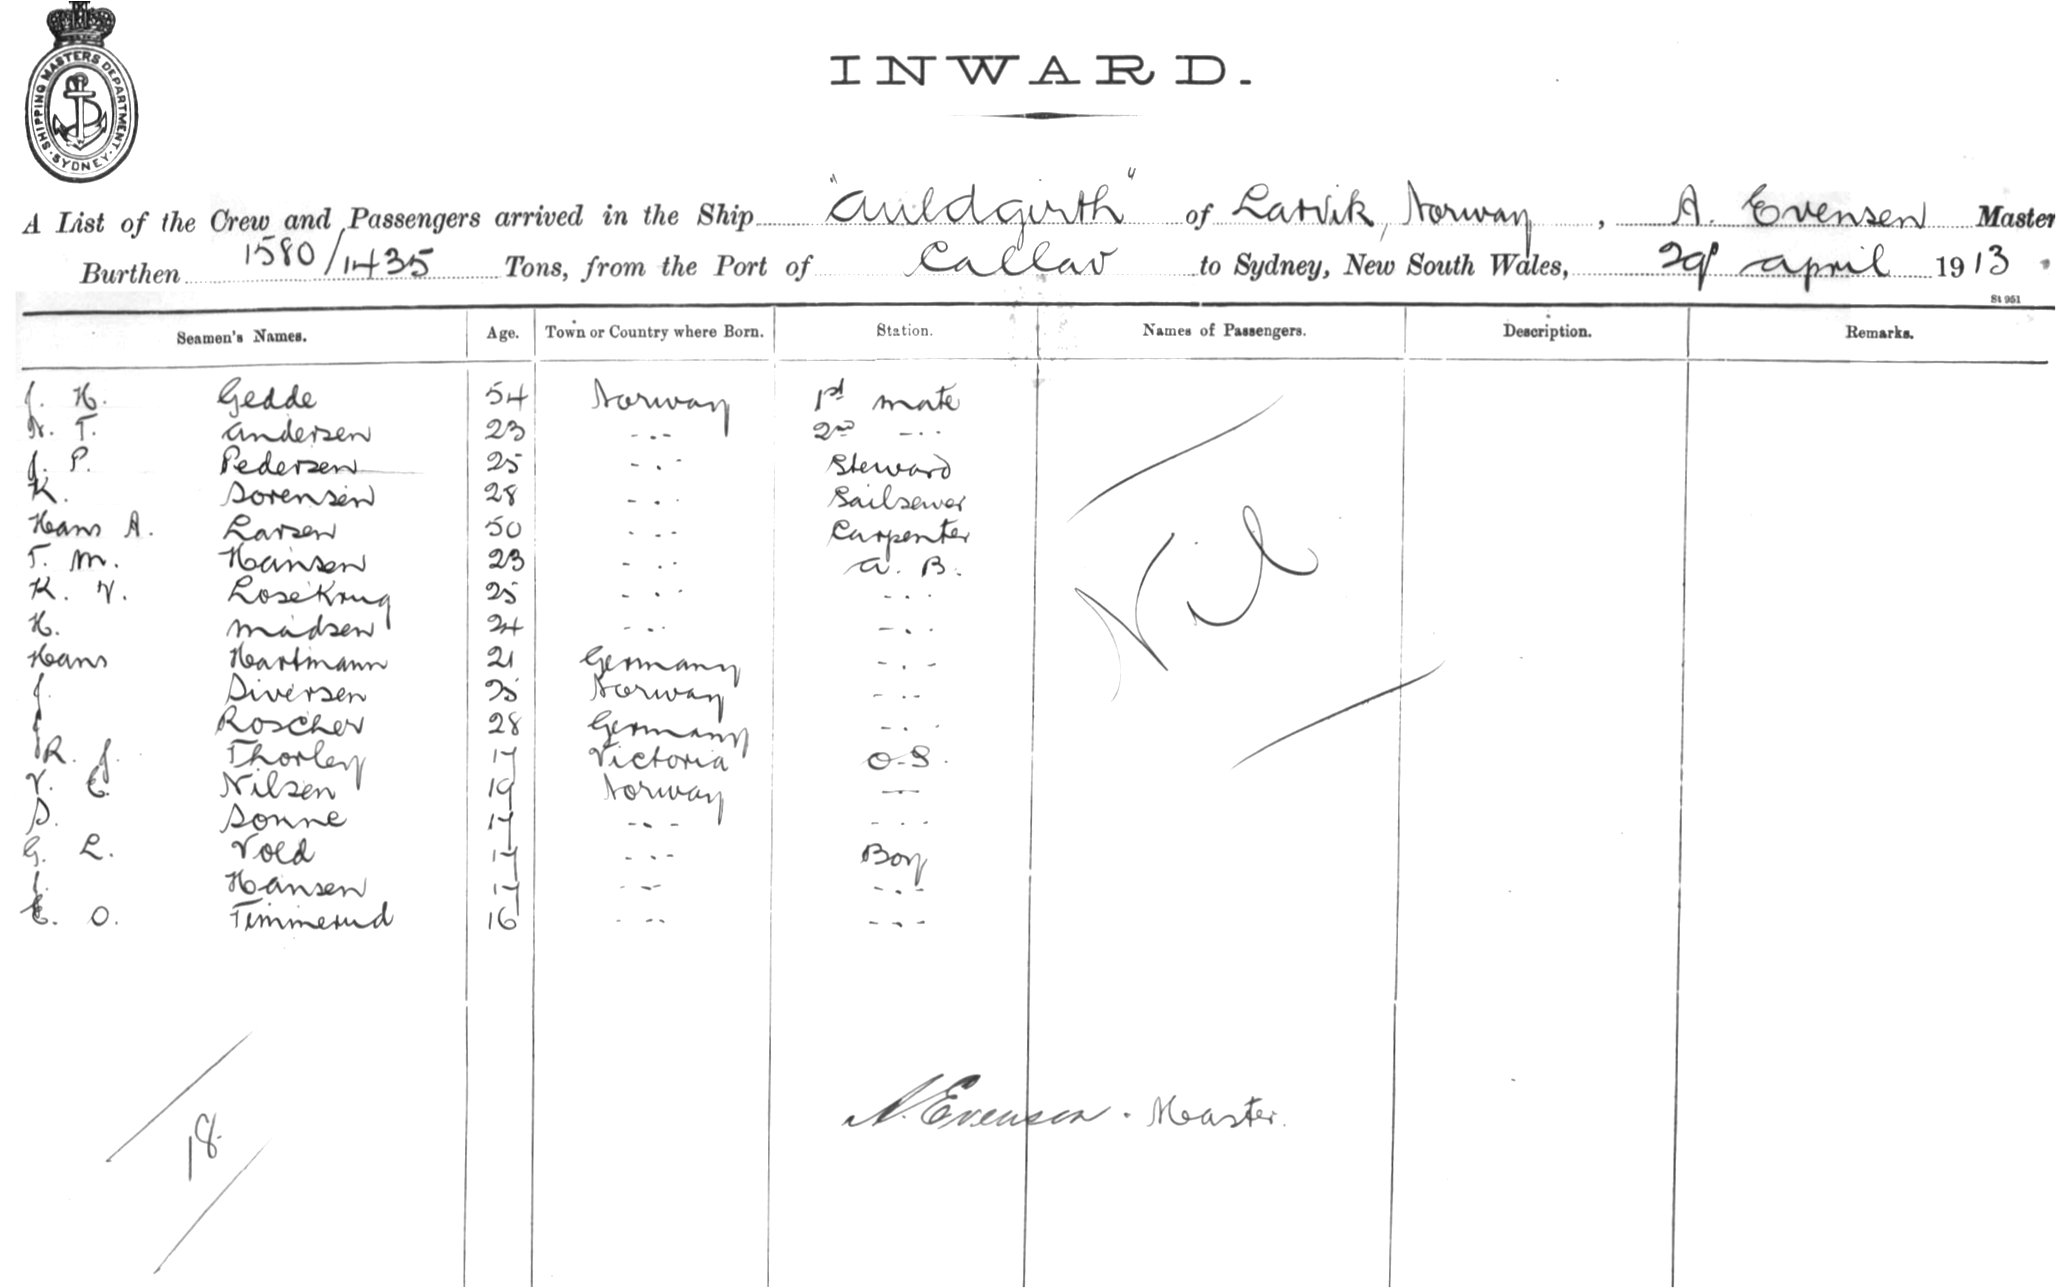 SHIPPING MASTERS DEPARTMENT. SYDNEY.
INWARD.
A List of the Crew and Passengers arrived in the Ship "Auldgirth" of Larvik, Norway, A. Evensen Master
Burthen 1580/1435 Tons, from the Port of Callao to Sydney, New South Wales, 29 April 1913.
St 951
Seamen's Names. Age. Town or Country where Born. Station. Names of Passengers. Description. Remarks.
J. H. Gedde 54 Norway 1st mate
N. T. Andersen 23 -.- 2nd -..
J. P. Pedersen 25 -.- Steward
K. Sorensen 28 -.. Sailsewer
Hans A. Larsen 50 -.. Carpenter
T. M. Hansen 23 -.. A. B.
K. V. Losekrug 25 -.. -..
H. Madsen 24 -.. -.-
Hans Hartmann 21 Germany -.-
J. Diversen 25 Norway -.-
J. Roscher 28 Germany -..
R. J. Thorley 17 Victoria O.S.
V. E. Nilsen 19 Norway —
S. Sonne 17 -.- -..
G. L. Vold 17 -.- Boy
J. Hansen 17 -.- -.-
E. O. Timmerud 16 -.. -.-
Nil
A. Evensen. Master.
18.